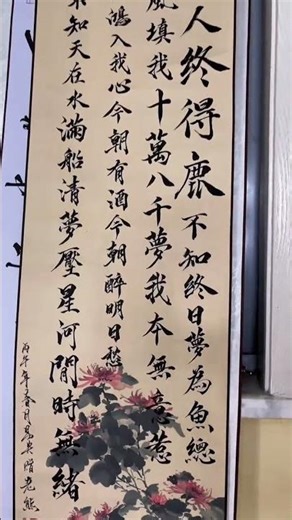 人終得鹿不知終日夢為魚總
風填我十萬八千夢我本無意惹
鴻入我心今朝有酒今朝醉明日愁
不知天在水滿船清夢壓星河閒時無緒
丙午年春月